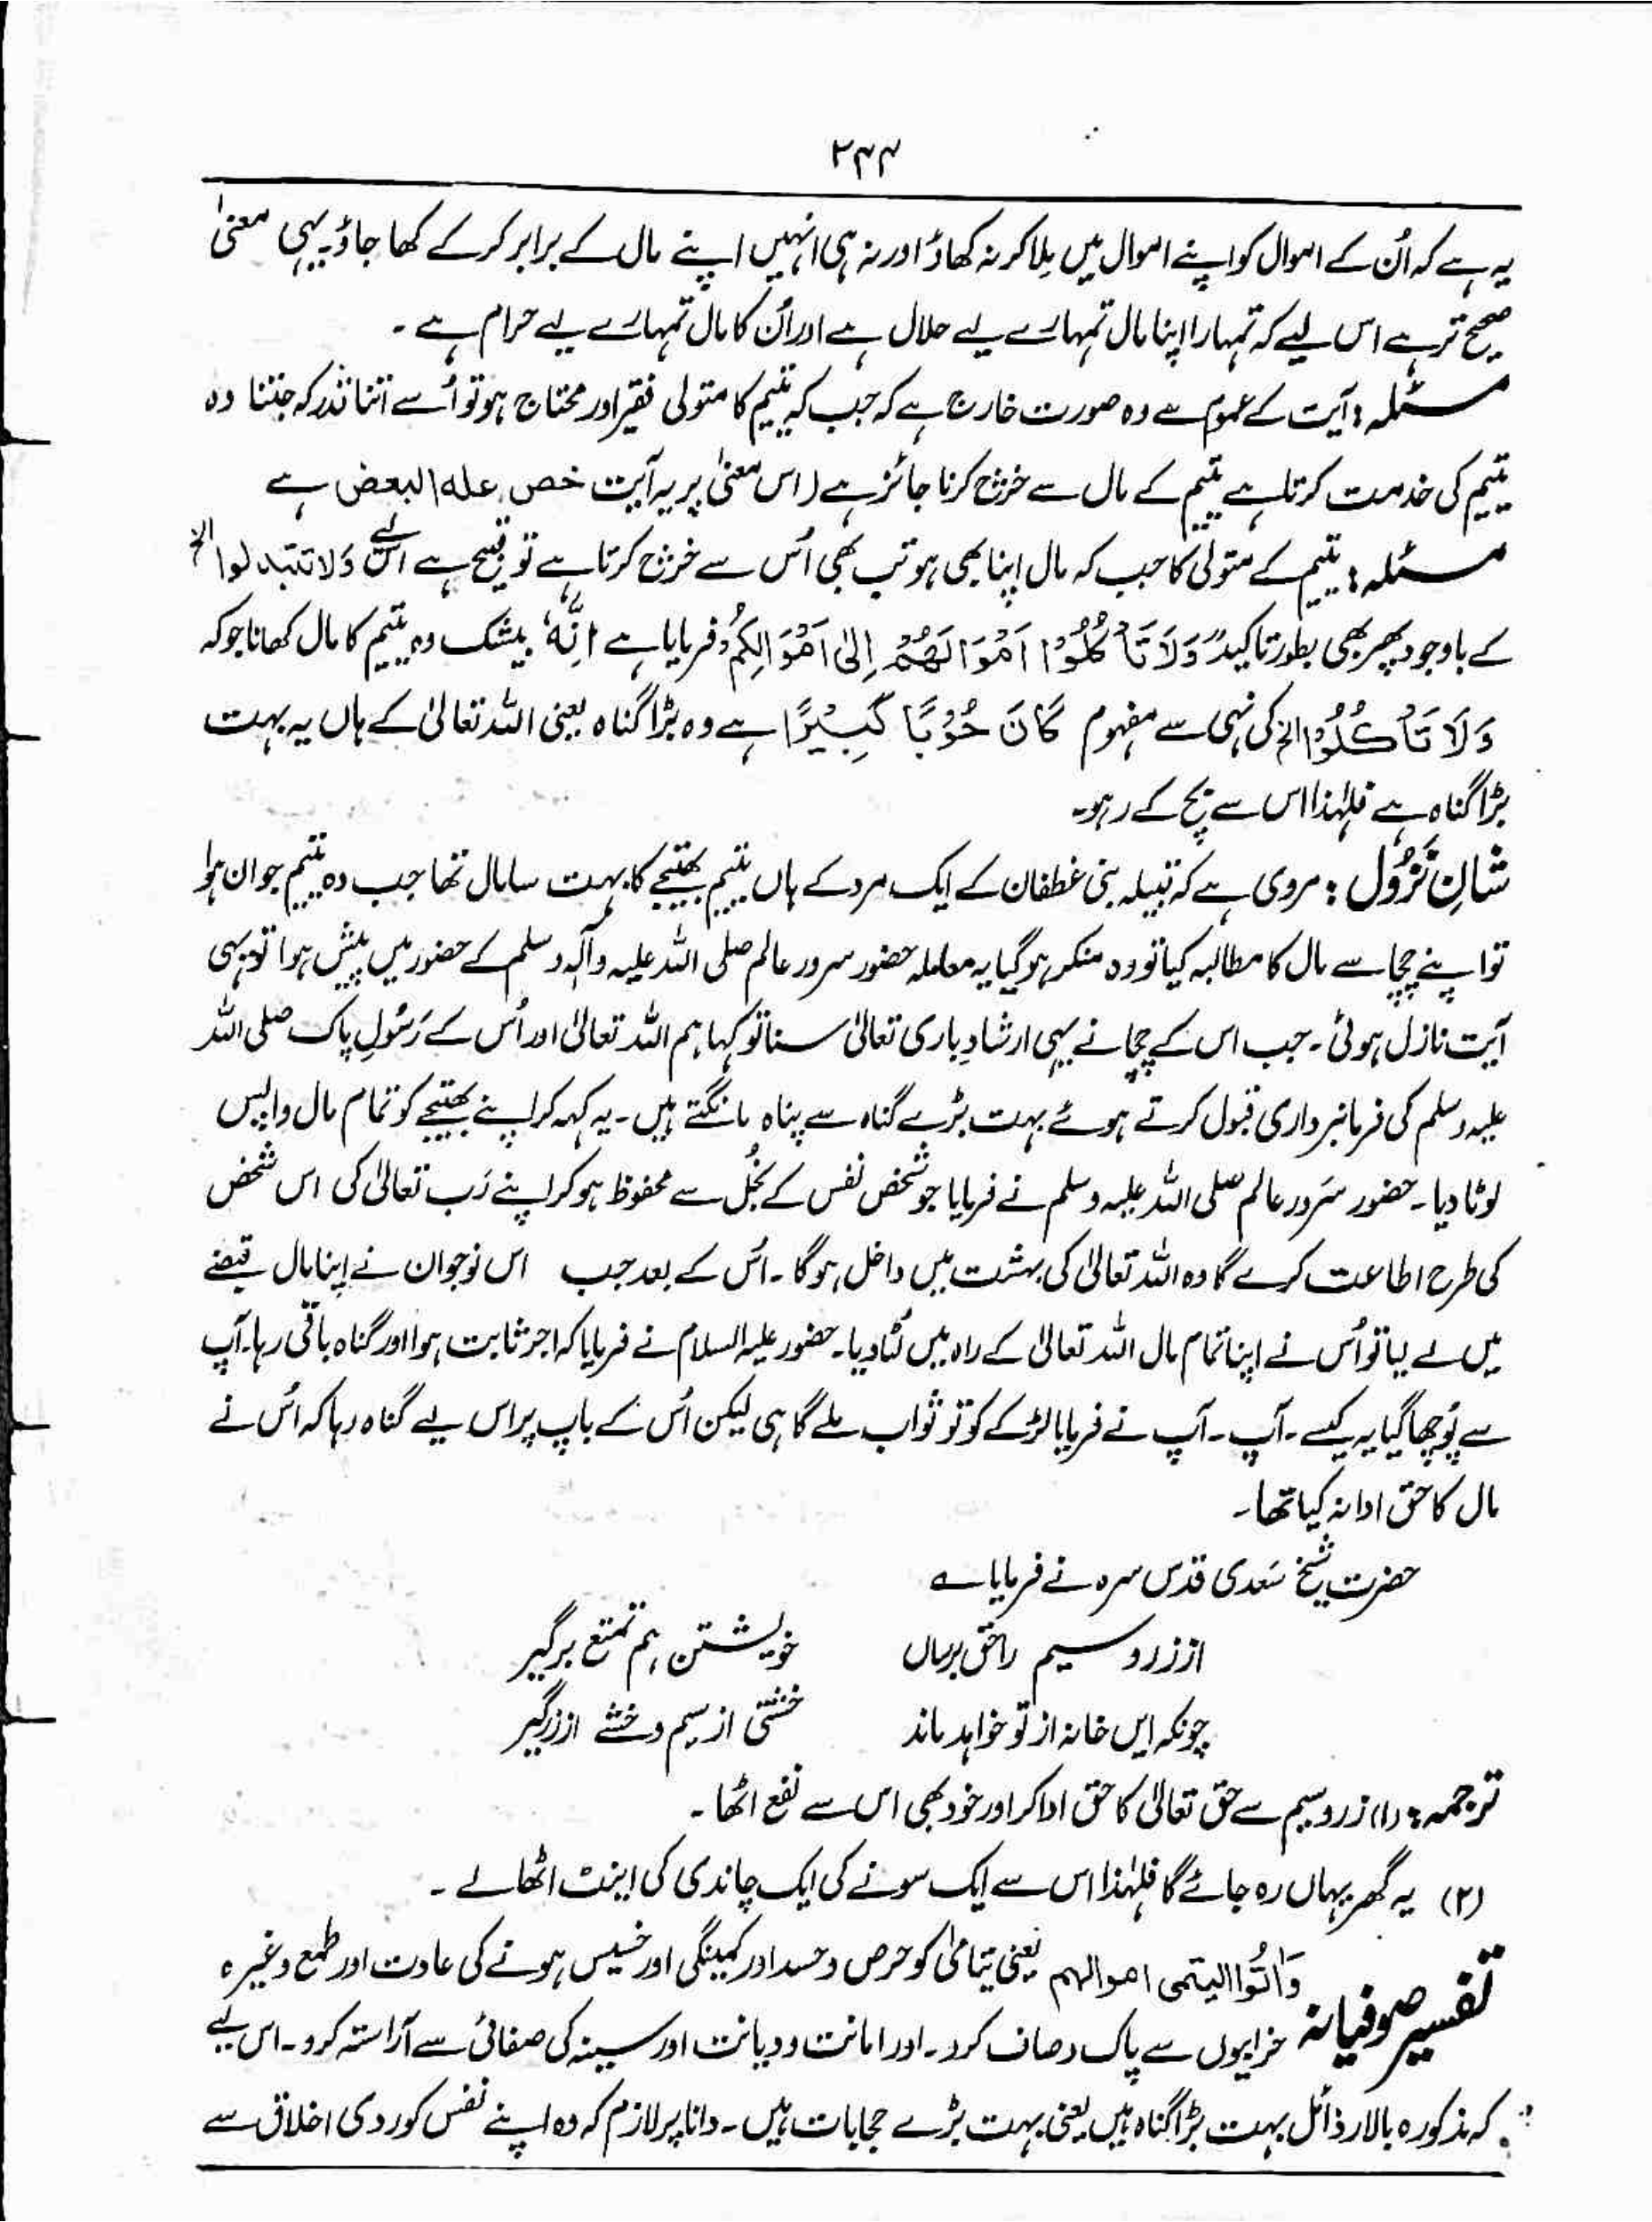 ۲۴۴
یہ ہے کہ اُن کے اموال کو اپنے اموال میں ملا کر نہ کھاؤ اور نہ ہی انہیں اپنے مال کے برابر کر کے کھا جاؤ۔ یہی معنیٰ
صحیح تر ہے اس لیے کہ تمہارا اپنا مال تمہارے لیے حلال ہے اور اُن کا مال تمہارے لیے حرام ہے ۔
مسئلہ : آیت کے عموم سے وہ صورت خارج ہے کہ جب کہ یتیم کا متولی فقیر اور محتاج ہو تو اُسے اتنا قدر کہ جتنا وہ
یتیم کی خدمت کرتا ہے یتیم کے مال سے خرچ کرنا جائز ہے ( اس معنیٰ پر یہ آیت خص عله البعض ہے
مسئلہ : یتیم کے متولی کا جب کہ مال اپنا بھی ہو تب بھی اُس سے خرچ کرتا ہے تو قبیح ہے اس لئے وَلا تتبدلوا الخ
کے باوجود پھر بھی بطور تاکید وَلَا تَأْكُلُوْا اَمْوَالَهُمْ اِلٰى اَمْوَالِكُمْ فرمایا ہے اِنَّهٗ بیشک وہ یتیم کا مال کھانا جو کہ
وَلَا تَأْكُلُوْا الخ کی نہی سے مفہوم كَانَ حُوْبًا كَبِيْرًا ہے وہ بڑا گناہ یعنی اللہ تعالیٰ کے ہاں یہ بہت
بڑا گناہ ہے فلہٰذا اس سے بچ کے رہو۔
شانِ نزُول : مروی ہے کہ قبیلہ بنی غطفان کے ایک مرد کے ہاں یتیم بھتیجے کا بہت سا مال تھا جب وہ یتیم جوان ہوا
تو اپنے چچا سے مال کا مطالبہ کیا تو وہ منکر ہو گیا یہ معاملہ حضور سرور عالم صلی اللہ علیہ وآلہ وسلم کے حضور میں پیش ہوا تو یہی
آیت نازل ہوئی ۔ جب اس کے چچا نے یہی ارشادِ باری تعالیٰ سنا تو کہا ہم اللہ تعالیٰ اور اُس کے رَسُولِ پاک صلی اللہ
علیہ وسلم کی فرمانبرداری قبول کرتے ہوئے بہت بڑے گناہ سے پناہ مانگتے ہیں ۔ یہ کہہ کر اپنے بھتیجے کو تمام مال واپس
لوٹا دیا ۔ حضور سَرور عالم صلی اللہ علیہ وسلم نے فرمایا جو شخص نفس کے بخُل سے محفوظ ہو کر اپنے رَب تعالیٰ کی اس شخص
کی طرح اطاعت کرے گا وہ اللہ تعالیٰ کی بہشت میں داخل ہو گا ۔ اُس کے بعد جب اس نوجوان نے اپنا مال قبضے
میں لے لیا تو اُس نے اپنا تمام مال اللہ تعالیٰ کے راہ میں لُٹا دیا ۔ حضور علیہ السلام نے فرمایا کہ اجر ثابت ہوا اور گناہ باقی رہا ۔ آپ
سے پُوچھا گیا یہ کیسے ۔ آپ ۔ آپ نے فرمایا لڑکے کو تو ثواب ملے گا ہی لیکن اُس کے باپ پر اس لیے گناہ رہا کہ اُس نے
مال کا حق ادا نہ کیا تھا ۔
حضرت شیخ سَعدی قدس سرہ نے فرمایا ؎
از زر و سیم راحتی برساں خویشتن ہم تمتع برگیر
چونکہ ایں خانہ از تو خواہد ماند خشتی از سیم و خشے از زر گیر
ترجمہ : (۱) زر و سیم سے حق تعالیٰ کا حق ادا کر اور خود بھی اس سے نفع اٹھا ۔
(۲) یہ گھر یہاں رہ جائے گا فلہٰذا اس سے ایک سونے کی ایک چاندی کی اینٹ اٹھا لے ۔
تفسیر صوفیانہ وَاٰتُوا الیتمی اموالهم یعنی یتامیٰ کو حرص و حسد اور کمینگی اور خسیس ہونے کی عادت اور طمع وغیرہ
خرابیوں سے پاک و صاف کرو ۔ اور امانت و دیانت اور سینہ کی صفائی سے آراستہ کرو ۔ اس لیے
کہ مذکورہ بالا رذائل بہت بڑا گناہ ہیں یعنی بہت بڑے حجابات ہیں ۔ دانا پر لازم کہ وہ اپنے نفس کو ردی اخلاق سے